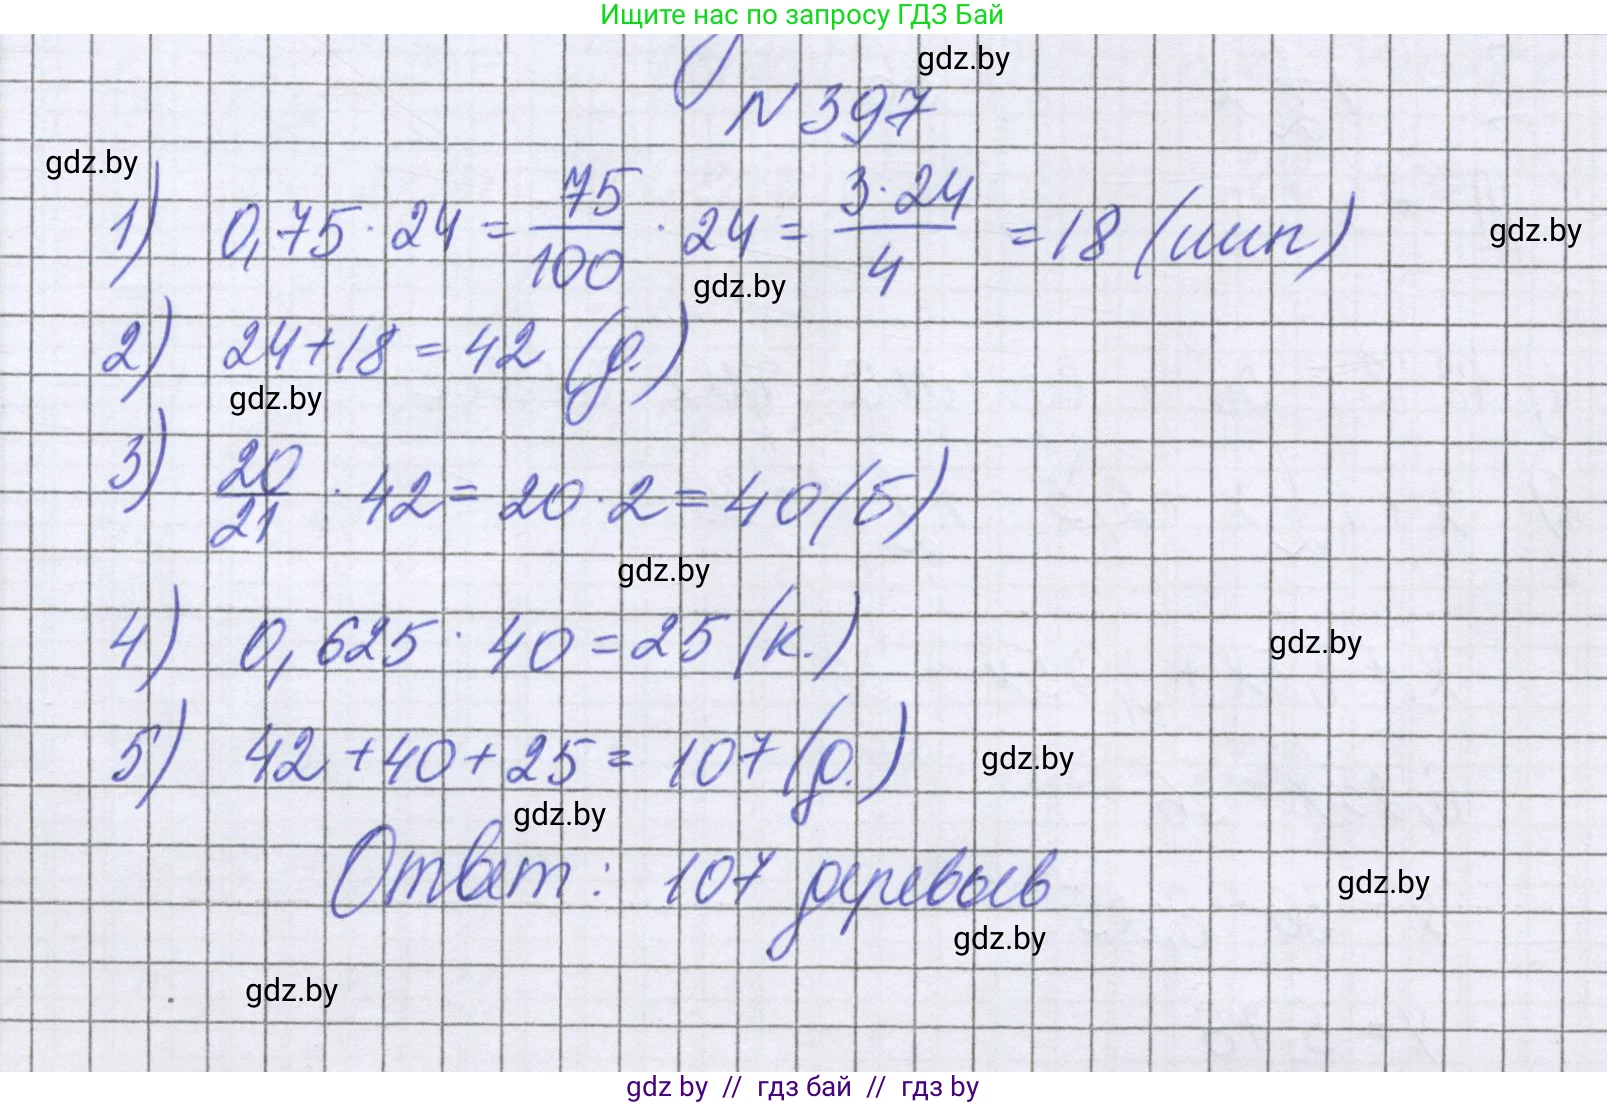 Ищите нас по запросу ГДЗ Бай
gdz.by
N 397
gdz.by
1) 0,75 · 24 = 75/100 · 24 = 3·24/4 = 18 (лип)
gdz.by
gdz.by
2) 24+18 = 42 (д.)
gdz.by
3) 20/21 · 42 = 20 · 2 = 40 (б)
gdz.by
4) 0,625 · 40 = 25 (к.)
gdz.by
5) 42 + 40 + 25 = 107 (д.)
gdz.by
gdz.by
Ответ: 107 деревьев
gdz.by
gdz.by
gdz.by
gdz by // гдз бай // гдз by